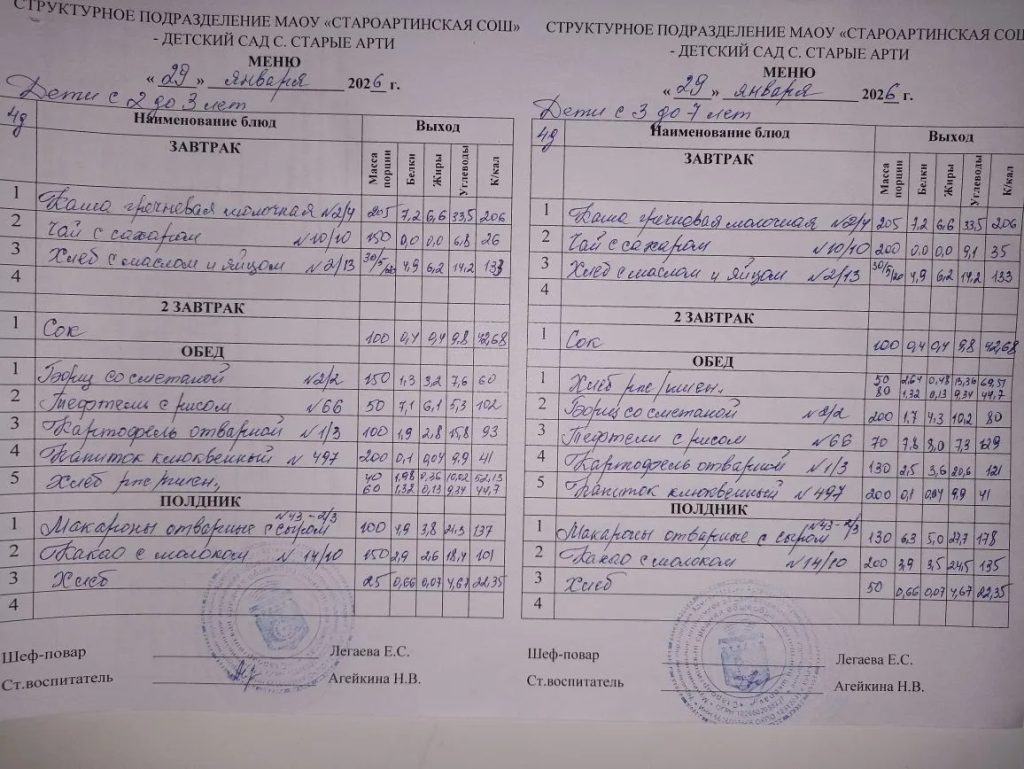 СТРУКТУРНОЕ ПОДРАЗДЕЛЕНИЕ МАОУ «СТАРОАРТИНСКАЯ СОШ»
- ДЕТСКИЙ САД С. СТАРЫЕ АРТИ
МЕНЮ
« 29 » января 2026 г.
Дети с 2 до 3 лет
4д Наименование блюд Выход
ЗАВТРАК Масса порции Белки Жиры Углеводы К/кал
1 Каша гречневая молочная №2/4 205 7,2 6,6 33,5 206
2 Чай с сахаром №10/10 150 0,0 0,0 6,8 26
3 Хлеб с маслом и яйцом №2/13 30/5/20 4,9 6,2 14,2 133
4
2 ЗАВТРАК
1 Сок 100 0,4 0,4 9,8 42,68
ОБЕД
1 Борщ со сметаной №2/2 150 1,3 3,2 7,6 60
2 Тефтель с рисом №66 50 7,1 6,1 5,3 102
3 Картофель отварной №1/3 100 1,9 2,8 15,8 93
4 Напиток клюквенный №497 200 0,1 0,04 9,9 41
5 Хлеб рж/пшен. 40 1,98 0,36 10,02 52,13
60 1,32 0,13 9,34 44,7
ПОЛДНИК
1 Макароны отварные с сыром №43-2/3 100 4,9 3,8 21,3 137
2 Какао с молоком №14/10 150 2,9 2,6 18,4 101
3 Хлеб 25 0,66 0,07 4,67 22,35
4
Шеф-повар Легаева Е.С.
Ст.воспитатель Агейкина Н.В.
СТРУКТУРНОЕ ПОДРАЗДЕЛЕНИЕ МАОУ «СТАРОАРТИНСКАЯ СОШ
- ДЕТСКИЙ САД С. СТАРЫЕ АРТИ
МЕНЮ
« 29 » января 2026 г.
Дети с 3 до 7 лет
4д Наименование блюд Выход
ЗАВТРАК Масса порции Белки Жиры Углеводы К/кал
1 Каша гречневая молочная №2/4 205 7,2 6,6 33,5 206
2 Чай с сахаром №10/10 200 0,0 0,0 9,1 35
3 Хлеб с маслом и яйцом №2/13 30/5/20 4,9 6,2 14,2 133
4
2 ЗАВТРАК
1 Сок 100 0,4 0,4 9,8 42,68
ОБЕД
1 Хлеб рж/пшен. 50 2,64 0,48 13,36 69,51
80 1,32 0,13 9,34 44,7
2 Борщ со сметаной №2/2 200 1,7 4,3 10,2 80
3 Тефтели с рисом №66 70 7,8 8,0 7,3 129
4 Картофель отварной №1/3 130 2,5 3,6 20,6 121
5 Напиток клюквенный №497 200 0,1 0,04 9,9 41
ПОЛДНИК
1 Макароны отварные с сыром №43-2/3 130 6,3 5,0 27,7 178
2 Какао с молоком №14/10 200 3,9 3,5 24,5 135
3 Хлеб 50 0,66 0,07 4,67 22,35
4
Шеф-повар Легаева Е.С.
Ст.воспитатель Агейкина Н.В.